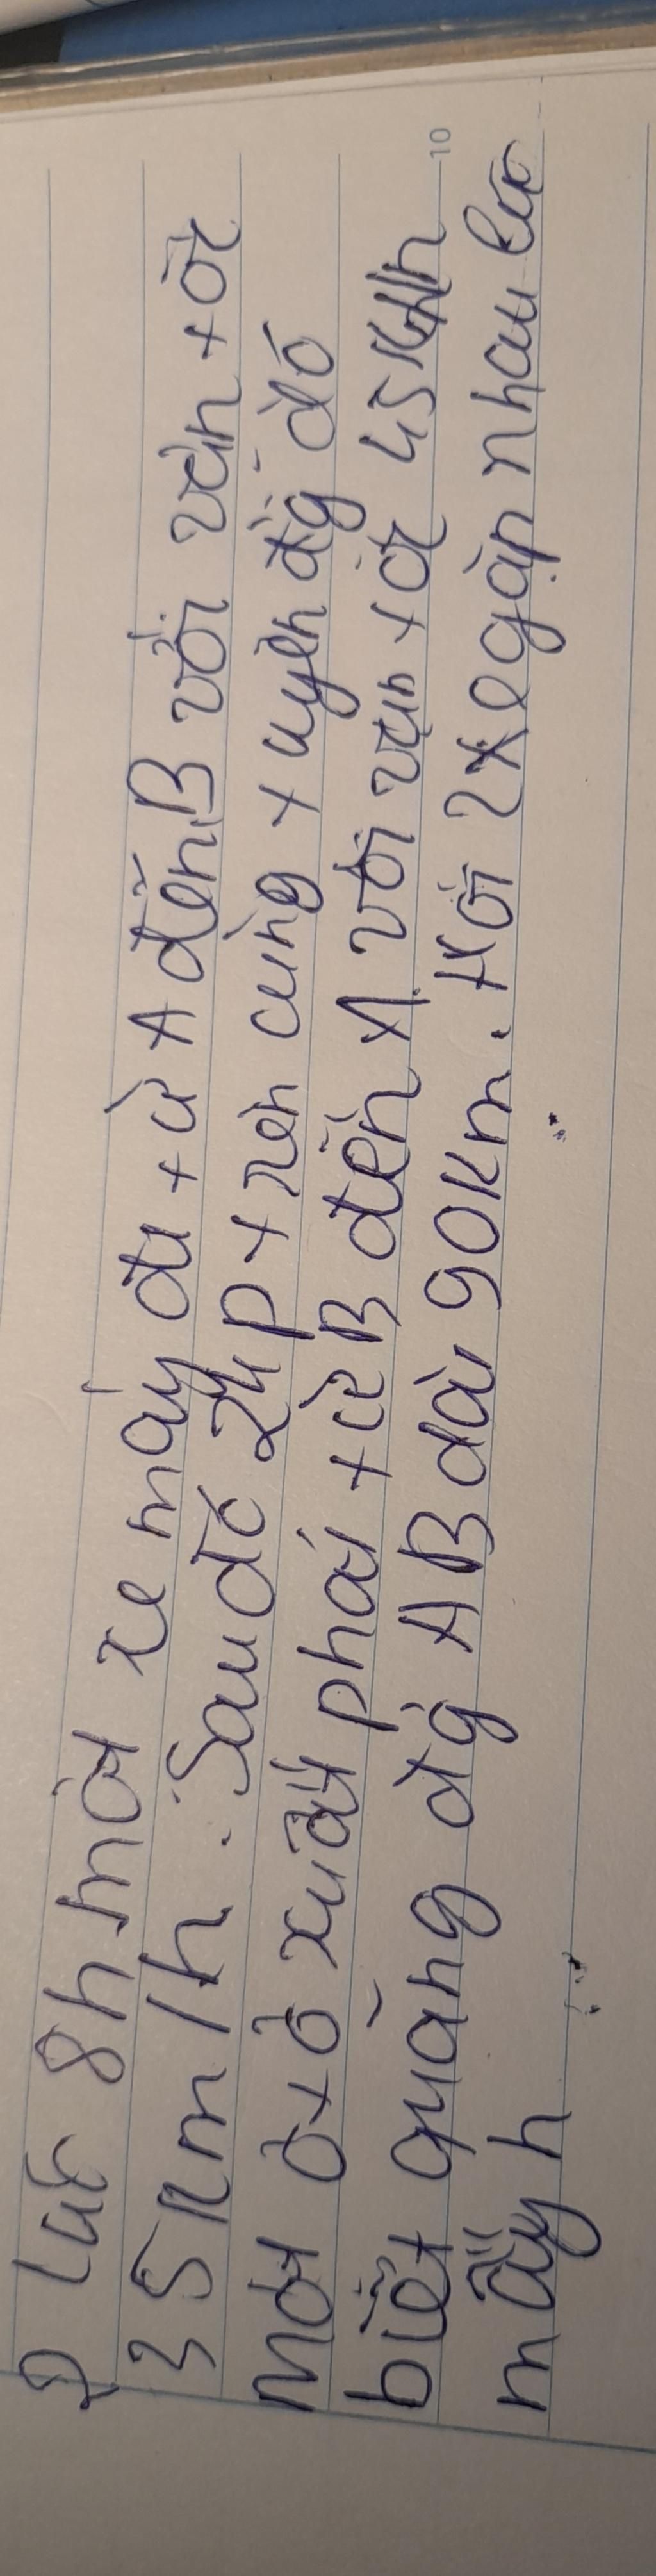 2 Lúc 8h một xe máy đi từ A đến B với vận tốc
35km/h. Sau đó 24p trên cùng tuyến đg đó
một ô tô xuất phát từ B đến A với vận tốc 45km/h
biết quãng đg AB dài 90km. Hỏi 2 xe gặp nhau lúc
mấy h
10